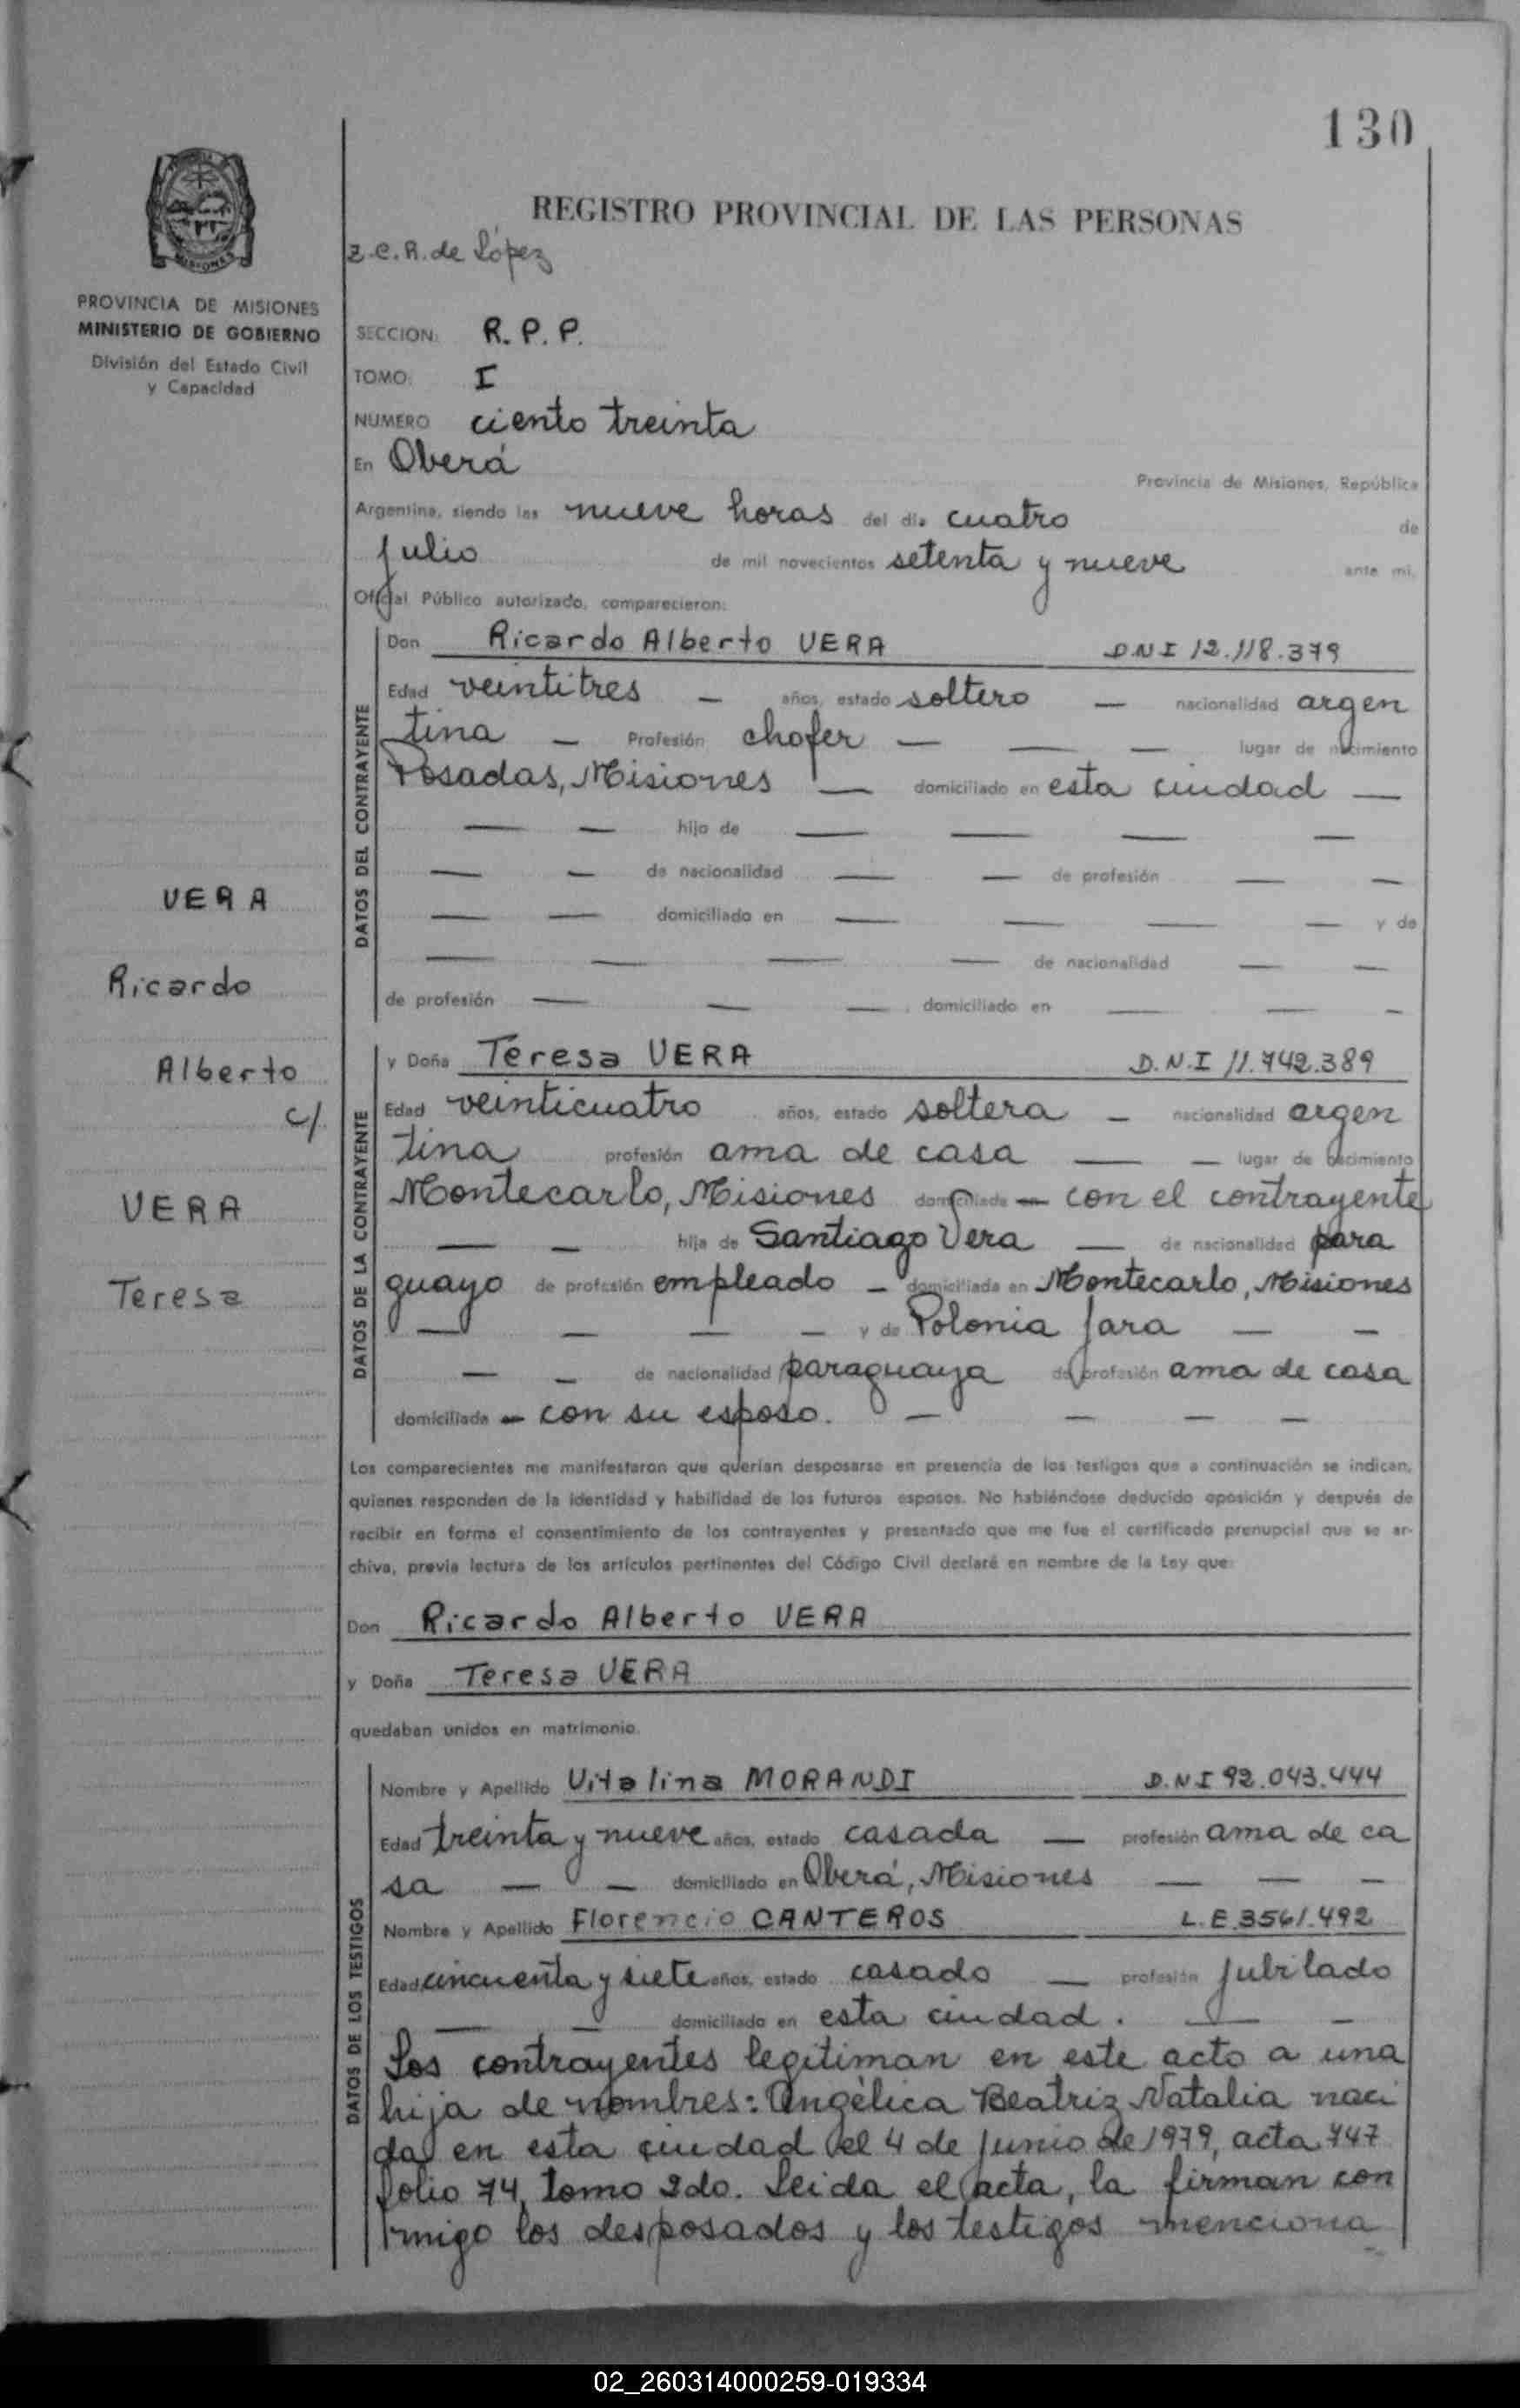 130
REGISTRO PROVINCIAL DE LAS PERSONAS
Z.C.R. de López
MISIONES
PROVINCIA DE MISIONES
MINISTERIO DE GOBIERNO
División del Estado Civil
y Capacidad
SECCION: R. P. P.
TOMO: I
NUMERO ciento treinta
En Oberá
Provincia de Misiones, República
Argentina, siendo las nueve horas del día cuatro de
Julio de mil novecientos setenta y nueve ante mí,
Oficial Público autorizado, comparecieron:
DATOS DEL CONTRAYENTE
Don Ricardo Alberto VERA D N I 12.118.379
Edad veintitres — años, estado soltero — nacionalidad argen
tina — Profesión chofer — — — lugar de nacimiento
Posadas, Misiones — domiciliado en esta ciudad —
— — hijo de — — — —
— — de nacionalidad — — de profesión — —
— — domiciliado en — — — — y de
— — — — de nacionalidad — —
de profesión — — — domiciliado en — — —
VERA
Ricardo
Alberto
c/
VERA
Teresa
DATOS DE LA CONTRAYENTE
y Doña Teresa VERA D.N.I 11.742.389
Edad veinticuatro años, estado soltera — nacionalidad argen
tina profesión ama de casa — — lugar de nacimiento
Montecarlo, Misiones domiciliada — con el contrayente
— — hija de Santiago Vera — de nacionalidad para
guayo de profesión empleado — domiciliada en Montecarlo, Misiones
— — — — y de Polonia Jara — —
— — de nacionalidad paraguaya de profesión ama de casa
domiciliada — con su esposo. — — — —
Los comparecientes me manifestaron que querían desposarse en presencia de los testigos que a continuación se indican,
quienes responden de la identidad y habilidad de los futuros esposos. No habiéndose deducido oposición y después de
recibir en forma el consentimiento de los contrayentes y presentado que me fue el certificado prenupcial que se ar-
chiva, previa lectura de los artículos pertinentes del Código Civil declaré en nombre de la Ley que:
Don Ricardo Alberto VERA
y Doña Teresa VERA
quedaban unidos en matrimonio.
DATOS DE LOS TESTIGOS
Nombre y Apellido Vitalina MORANDI D.N I 92.043.444
Edad treinta y nueve años, estado casada — profesión ama de ca
sa — — domiciliado en Oberá, Misiones — — —
Nombre y Apellido Florencio CANTEROS L.E.3561.492
Edad cincuenta y siete años, estado casado — profesión Jubilado
— — domiciliado en esta ciudad. — —
Los contrayentes legitiman en este acto a una
hija de nombres: Angélica Beatriz Natalia naci
da en esta ciudad el 4 de Junio de 1979, acta 747
folio 74, tomo 2do. Leida el acta, la firman con
migo los desposados y los testigos menciona
02_260314000259-019334